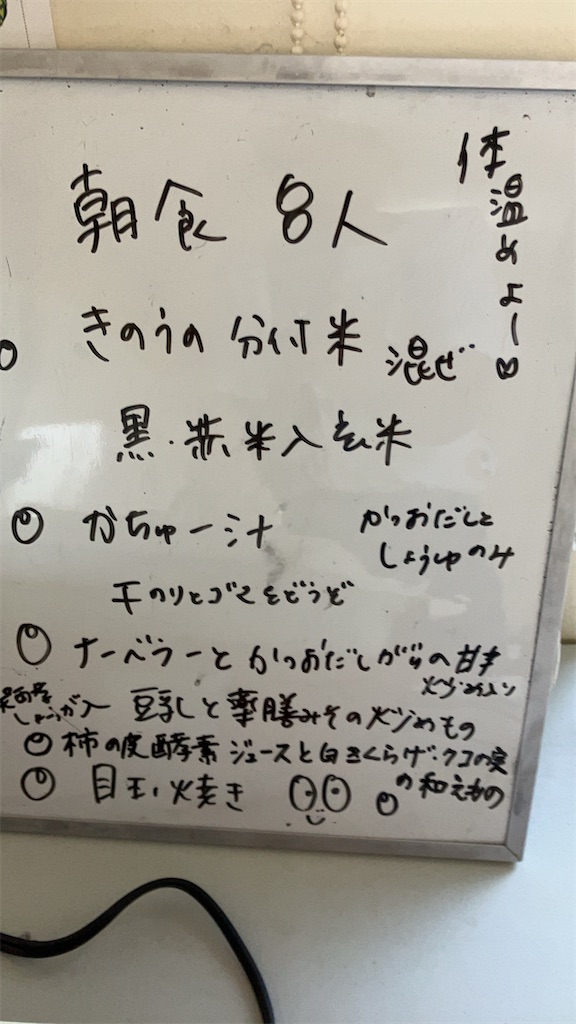 朝食 8人
体温めよー♡
きのうの 分付米 混ぜ
黒・赤米入玄米
かちゅー汁
かつおだしと
しょうゆのみ
干のりとゴマをどうぞ
ナーベラーとかつおだしがらの甘辛
炒め入り
しょうが入 豆乳と薬膳みその炒めもの
柿の皮酵素ジュースと白きくらげ・クコの実
の和えもの
目玉焼き